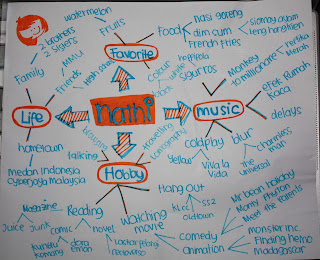 watermelon
Fruits
Food
nasi goreng
dim sum
French Fries
Siomay ayam
Favorite
2 brothers
2 sisters
Family
MMU
Friends
High school
colour
white
black
sigur ros
monkey
to millionaire
efek rumah
kaca
delays
Life
nathi
music
hometown
Medan Indonesia
cyberjaya Malaysia
talking
travelling
Hobby
coldplay
Yellow
Viva la
Vida
blur
charmless
man
The
universal
Magazine
Juice
Junk
Reading
comic
novel
kungfu
komang
dora
emon
laskar pelangi
watching
movie
Hang out
klcc
ss2
oldtown
comedy
Mr bean holiday
Monty Phyton
Meet the Parents
animation
monster inc
Finding nemo
madagascar